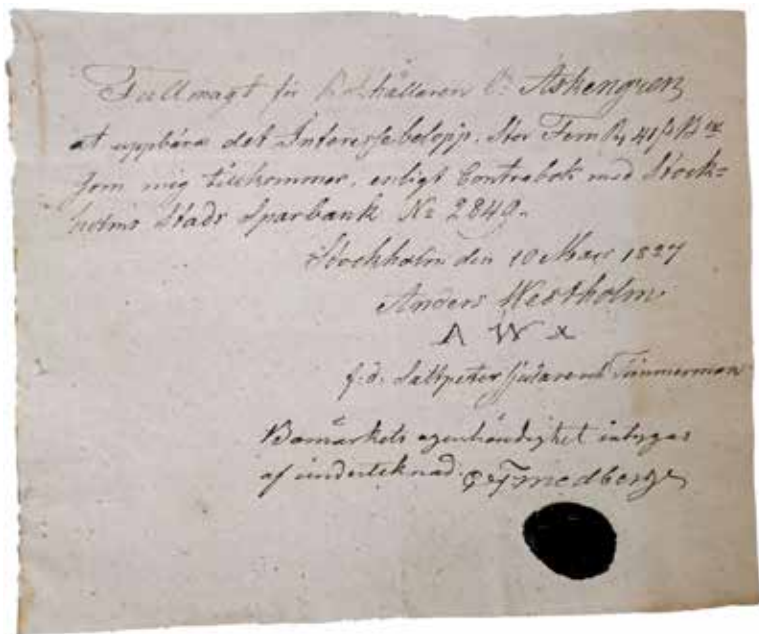 Fullmagt för hållaren C. Askengren
at uppbära det Interesse belopp, Stor Fem
som mig tillkommer, enligt Contrabok med Stock=
holms Stads Sparbank No 2849.
Stockholm den 10 Mars 1827
Anders Westholm
A W x
f.d. Saltpeter Sjudare och Timmerman
Bomärkets egenhändighet intygas
af undertecknad.